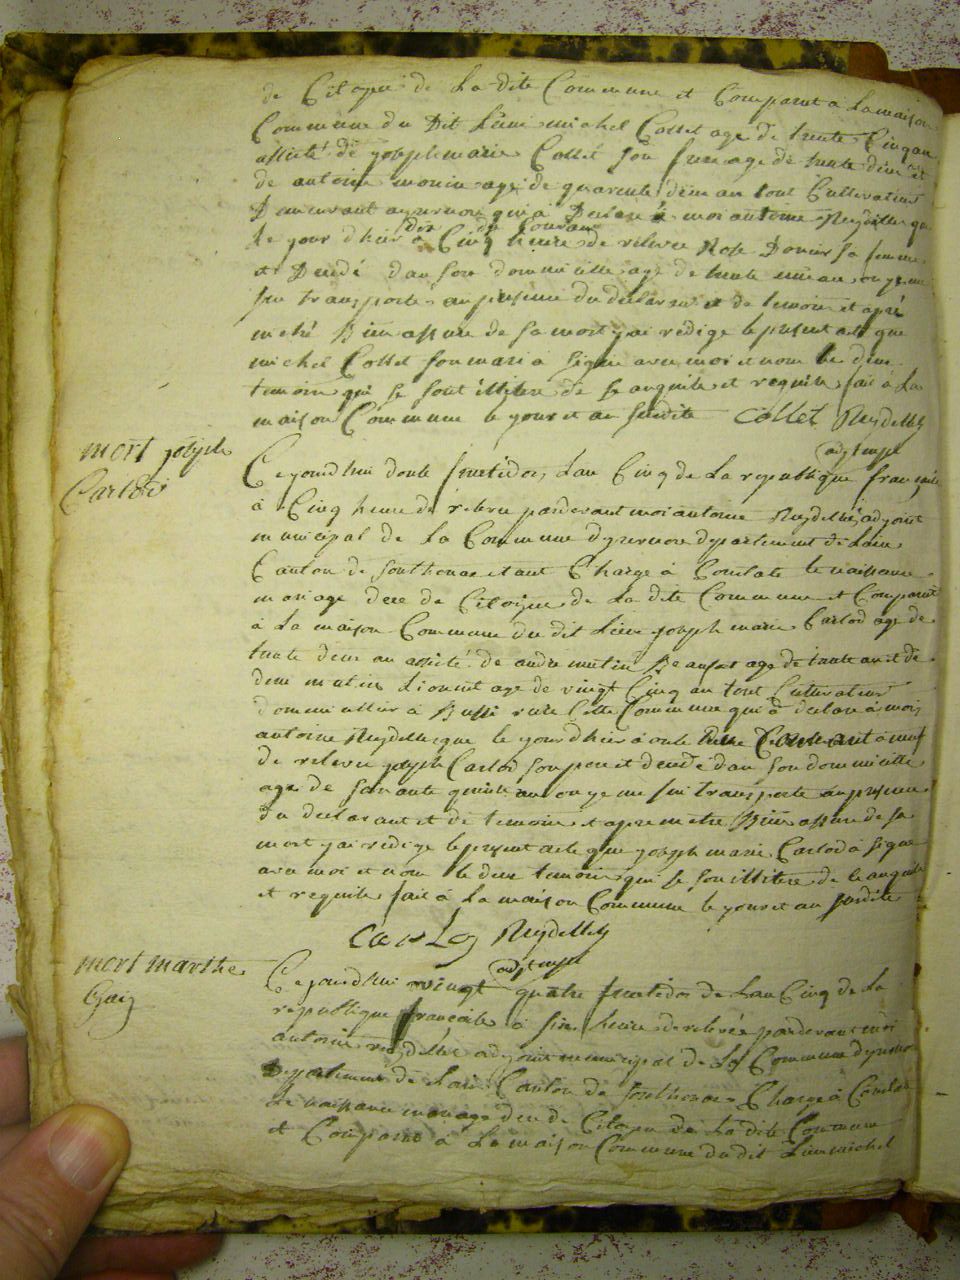 de Citoyen de La dite Commune et Comparut a La maison
Commune du Dit Lieu michel Collet age de trente Cinq an
assisté de joseph marie Collet son frere age de trente deux et
de antoine monin age de quarente deux an tout Cultivateur
Demeurant a qui a Declare a moi antoine Reydellet que
dix du Courant
le jour dhier a Cinq heure de relevee Rose Donier sa femme
et Decedé dan son dommicille age de trente an on je me
sui transporte au presence du declarant et de temoin et apre
metre Bien assure de sa mort jai redige le present acte que
michel Collet son mari a signe avec moi et non le deux
temoin qui se sont illitere de se anquite et requite fait a La
maison Commune le jour et an susdite Collet Reydellet
adjt mpl
mort joseph
Carlod
Ce jourdhui douse fructidor Lan Cinq de La republique française
à Cinq heure de relevee pardevant moi antoine Reydellet adjoint
municipal de La Commune departement de Lain
Canton de Songthonax etant Charge a Constate le naissance
mariage dece de Citoyen de La dite Commune et Comparut
a La maison Commune du dit Lieu joseph marie Carlod age de
trente deux an assisté de andre mutin Beausut age de trante an et de
deni mutin age de vingt Cinq an tout Cultivateur
dommicillier a Bussi rière Cette Commune qui a declare a moi
antoine Reydellet que le jour dhier a onse heure
de relevee joseph Carlod son pere et decedé dan son dommicille
age de soisante quinse an on je me sui transporte au presence
du declarant et de temoin et apre metre Bien assure de sa
mort jai redige le present acte que joseph marie Carlod a signe
avec moi et non le deux temoin qui se son illitere de se anquite
et requite fait a La maison Commune le jour et an susdite
Carlod Reydellet
adjt mpl
mort marthe
Gaiz
Ce jourdhui vingt quatre fructidor de Lan Cinq de La
republique françaite a sixe heure de relevée pardevant moi
antoine reydellet adjoint municipal de La Commune
Departement de Lain Canton de Songthonax Charge a Constate
Le naissance mariage dece de Citoyen de La dite Commune
et Comparut a La maison Commune du dit Lieu michel